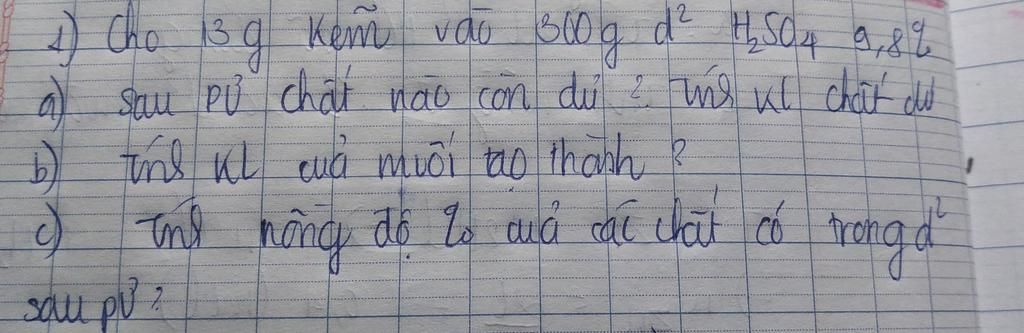 1) Cho 13 g Kẽm vào 300g d² H₂SO₄ 9,8%
a) sau PƯ chất nào còn dư ? Tính KL chất dư
b) Tính KL của muối tạo thành ?
c) Tính nồng độ % của các chất có trong d²
sau PƯ ?